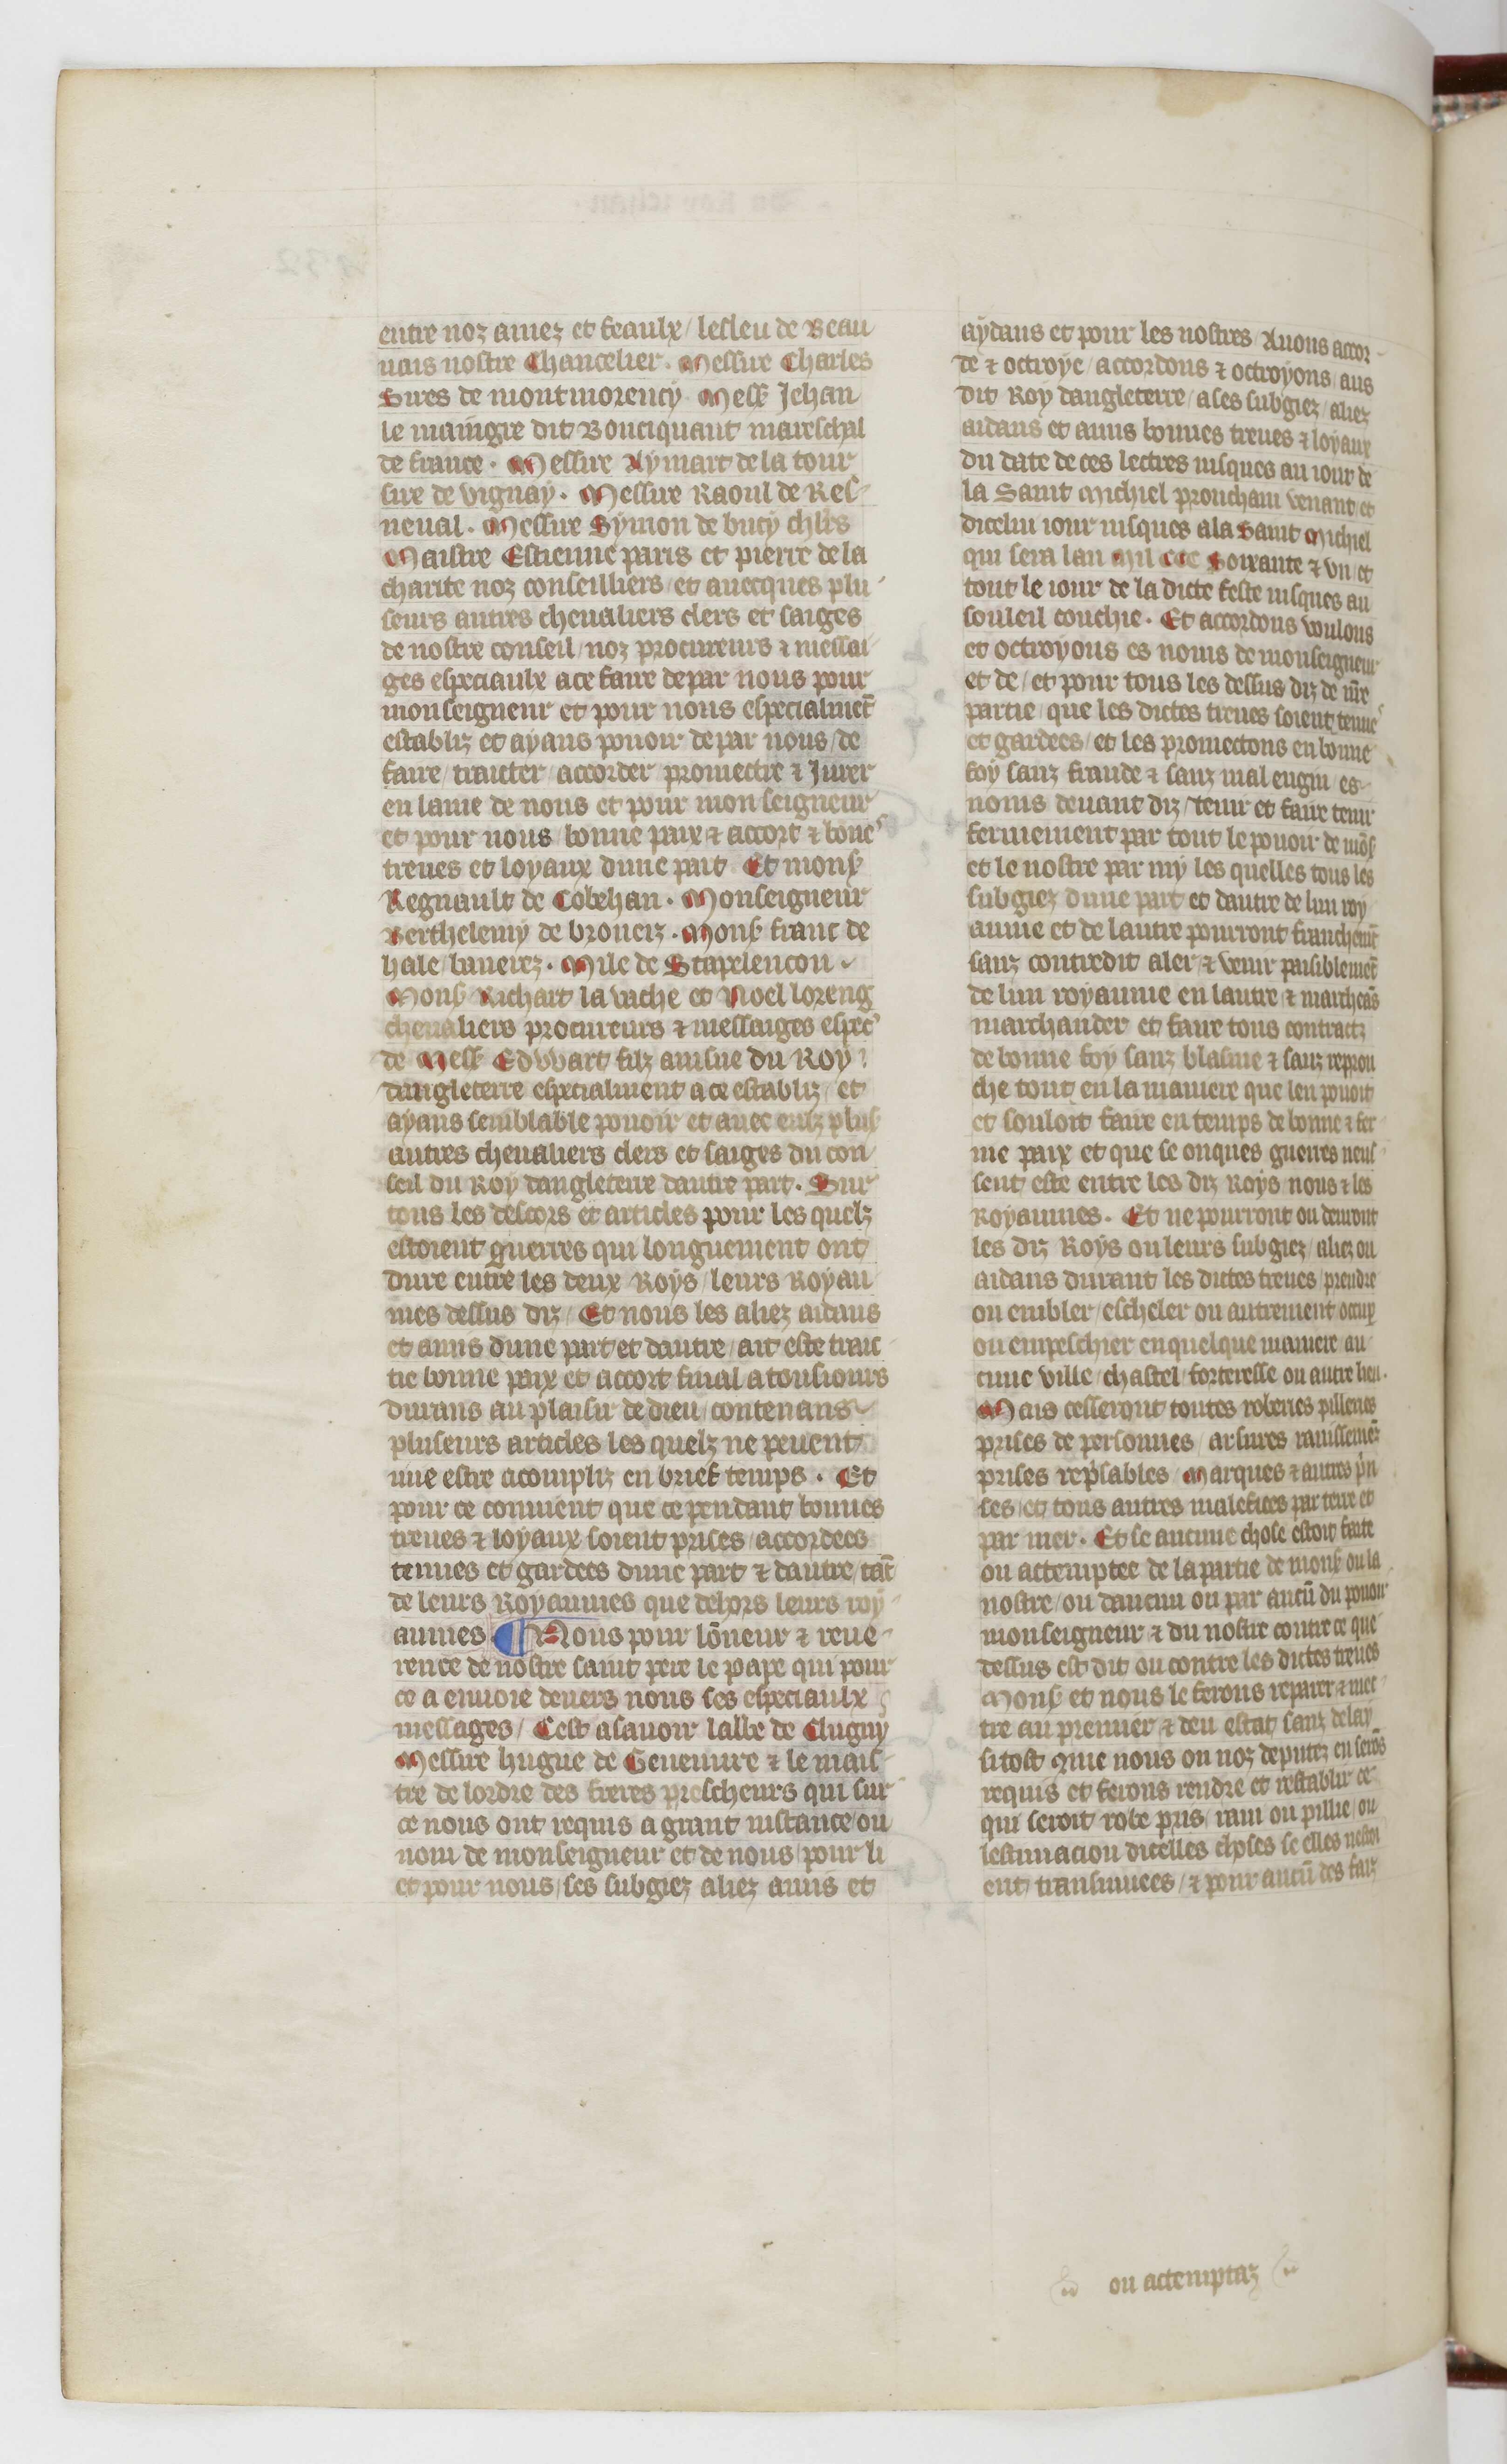 entre noz amez et feaulx / lesleu de Beau
uais nostre Chancelier . Messire Charles
Sires de montmorency Mess Jehan
le maingre dit Bouciquaut mareschal
de france . Messire Aymart de la tour
sire de vignay . Messire Raoul de Res
neual . Messire Symon de bucy chlrs
Maistre Estienne paris et pierre de la
charite noz conseilliers / et auecques plu
seurs autres cheualiers clers et saiges
de nostre conseil / noz procureurs ⁊ messai
ges especiaulx a ce faire de par nous pour
monseigneur et pour nous especialmēt
establiz et ayans pouoir de par nous / de
faire / traicter / accorder promectre ⁊ Jurer
en lame de nous et pour monseigneur
et pour nous / bonne paix ⁊ accort ⁊ bone
treues et loyaux dune part Et mons
Regnault de Cobehan . Monseigneur
Berthelemy de broueiz . Mons franc de
hale / baneirez . Mile de Stapelencon
Mons Richart la vache et Noel loreng
cheualiers procureurs ⁊ messaiges espec
de Mess Edwart filz ainsne du Roy
dangleterre especialment a ce establiz / et
ayans semblable pouoir et auec eulz plus
autres cheualiers clers et saiges du con
seil du Roy dangleterre dautre part . Sur
tous les descors et articles pour les quelz
estoient guerres qui longuement ont
dure entre les deux Roys / leurs Royau
mes dessus diz / Et nous les aliez aidans
et amis dune part et dautre / ait este traic
tie bonne paix et accort final a tousiours
durans au plaisir de dieu / contenans
pluseurs articles les quelz ne peuent
mie estre acompliz en brief temps . Et
pour ce conuient que ce pendant bonnes
treues ⁊ loyaux soient prises / accordees
tenues et gardees dune part ⁊ dautre / tāt
de leurs Royaumes que dehors leurs roy
aumes ¶ Nous pour lōneur ⁊ reue
rence de nostre saint pere le pape qui pour
ce a enuoie deuers nous ses especiaulx
messages / Cest asauoir labbe de Clugny
Messire hugue de Geneuure ⁊ le mais
tre de lordre des freres prescheurs qui sur
ce nous ont requis a grant instance / ou
nom de monseigneur et de nous / pour li
et pour nous / ses subgiez aliez amis et
aydans et pour les nostres / Auons accor
de ⁊ octroye / accordons ⁊ octroyons / aus
dit Roy dangleterre / a ses subgiez / aliez
aidans et amis bonnes treues ⁊ loyaux
du date de ces lectres iusques au iour de
la Saint Michiel prouchain venant et
dicelui iour iusques a la Saint Michiel
qui sera lan Mil CCC Soixante ⁊ vn / et
tout le iour de la dicte feste iusques au
souleil couchie . Et accordons voulons
et octroyons es noms de monseigneur
et de / et pour tous les dessus diz de nr̄e
partie / que les dictes treues soient tenue
et gardees / et les promectons en bonne
foy sanz fraude ⁊ sanz mal engin / es
noms deuant diz / tenir et faire tenir
fermement par tout le pouoir de mōs
et le nostre par my les quelles tous les
subgiez dune part et dautre de lun roy
aume et de lautre pourront franchemēt
sanz contredit aler ⁊ venir paisiblemēt
de lun royaume en lautre ⁊ marcheās
marchander et faire tous contractz
de bonne foy sanz blasme ⁊ sanz reprou
che tout en la maniere que len pouoit
et souloit faire en temps de bonne ⁊ fer
me paix et que se onques guerres neus
sent este entre les diz Roys nous ⁊ les
Royaumes . Et ne pourront ou deuront
les diz Roys ou leurs subgiez / aliez ou
aidans durant les dictes treues / prendre
ou embler / escheler ou autrement occup
ou empeschier en quelque maniere au
cune ville / chastel / forteresse ou autre lieu .
Mais cesseront toutes roberies pilleries
prises de personnes / arsures rauissemēz
prises represables Marques ⁊ autres prin
ses / et tous autres malefices par terre et
par mer . Et se aucune chose estoit faite
ou actemptee de la partie de mons ou la
nostre / ou daucun ou par aucū du pouoir
monseigneur ⁊ du nostre contre ce que
dessus est dit ou contre les dictes treues
Mons et nous le ferons reparer ⁊ met
tre au premier ⁊ deu estat sanz delay
si tost que nous ou noz deputez en serōs
requis et ferons rendre et restablir ce
qui seroit robe pris / raui ou pillie / ou
lestimacion dicelles choses se elles nestoi
ent transmuees / ⁊ pour aucū des faiz
ou actemptaz